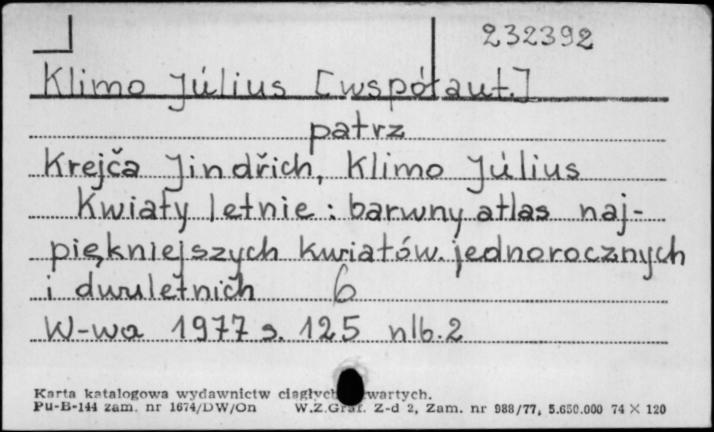 232392
Klimo Július [współaut.]
patrz
Krejča Jindřich, Klimo Július
Kwiaty letnie : barwny atlas naj-
piękniejszych kwiatów jednorocznych
i dwuletnich 6
W-wa 1977 s. 125 nlb. 2
Karta katalogowa wydawnictw ciągłych wartych.
Pu-B-144 zam. nr 1674/DW/On W.Z.Graf. Z-d 2, Zam. nr 988/77, 5.650.000 74 × 120